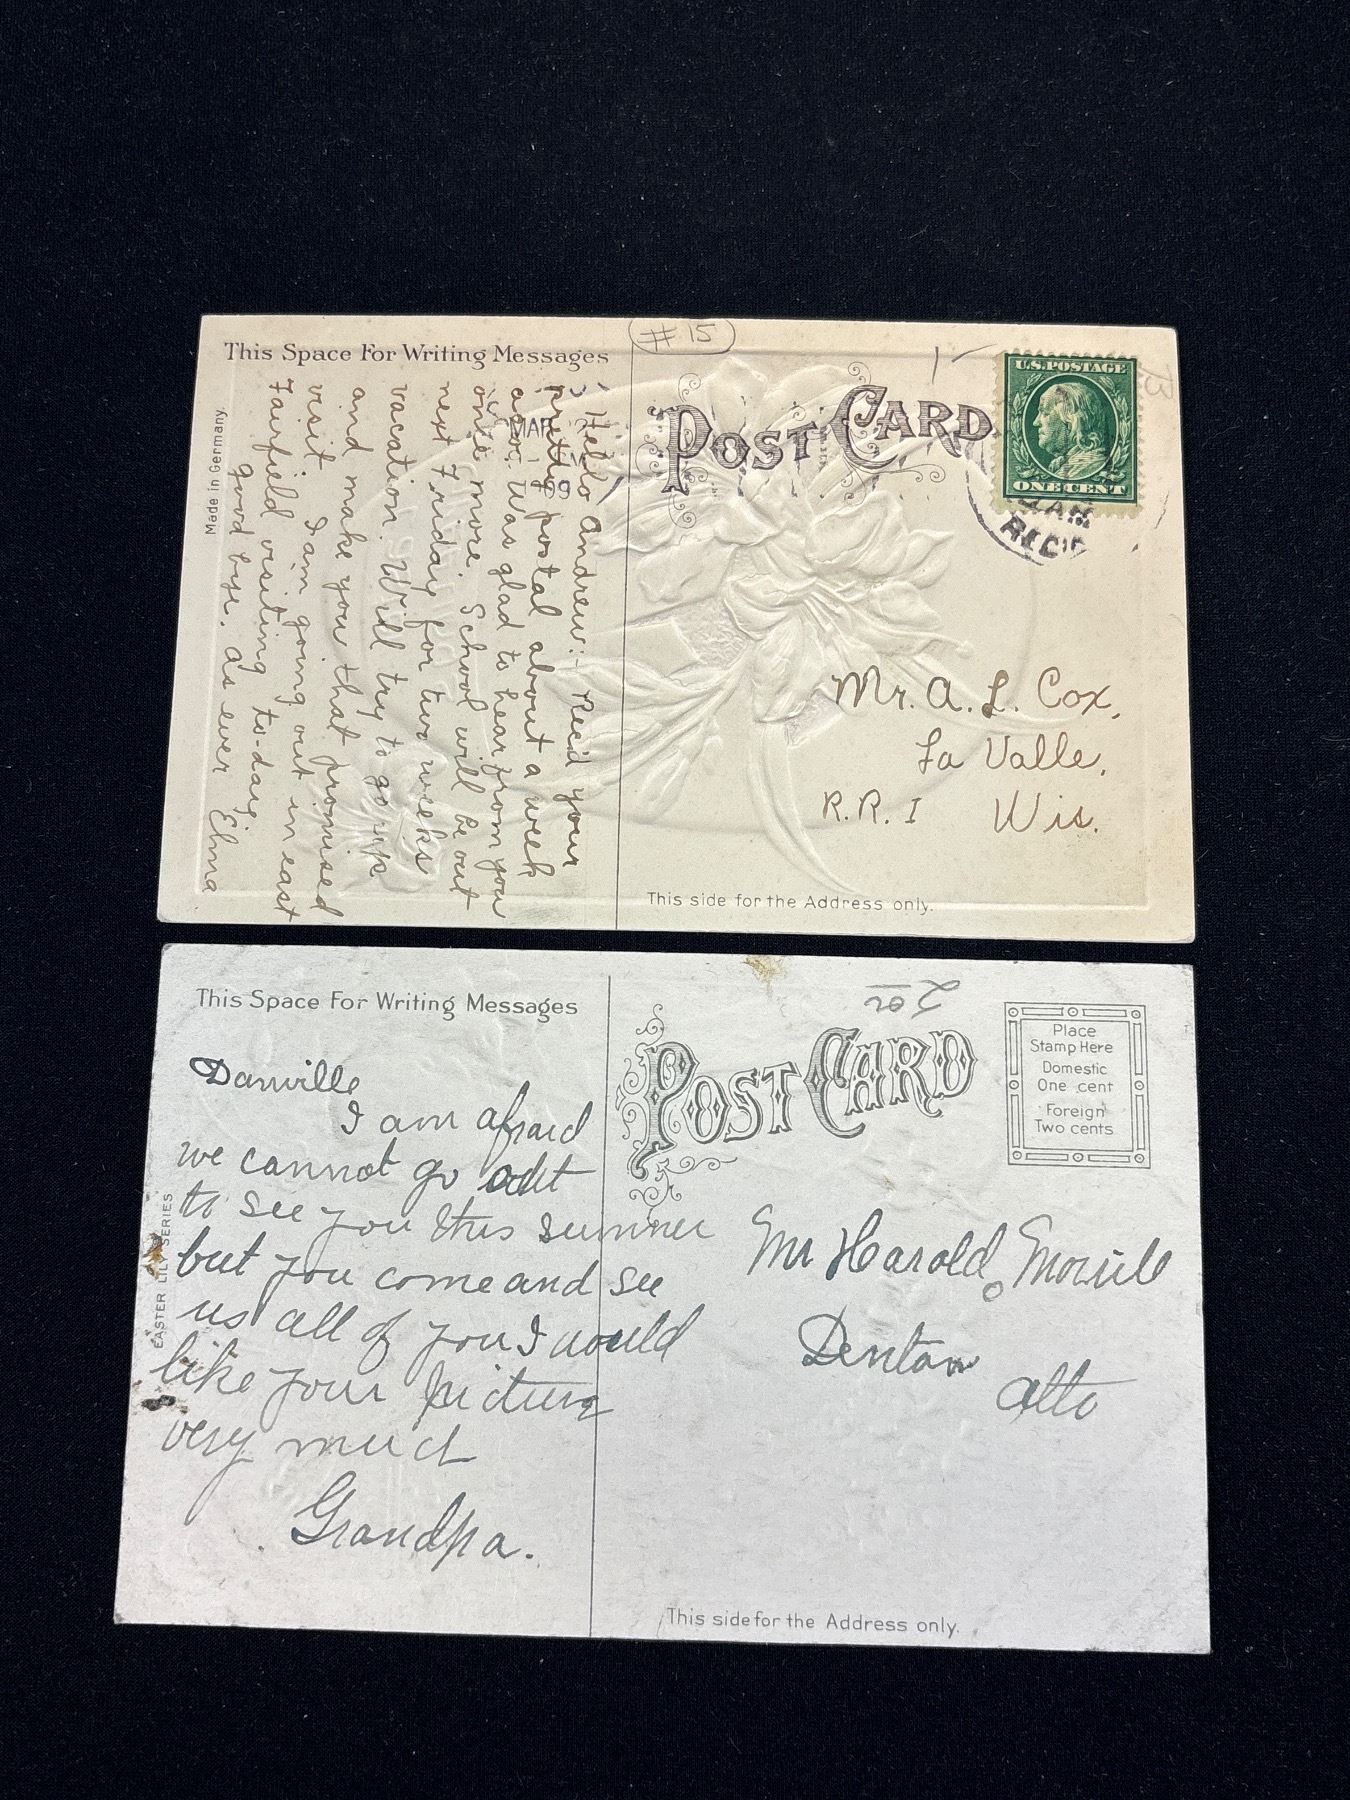 #15
This Space For Writing Messages
POST CARD
U.S. POSTAGE
ONE CENT
MAR
REC'D
Made in Germany.
Hello Andrew:- Rec'd your
pretty postal about a week
ago. Was glad to hear from you
once more. School will be out
next Friday for two weeks
vacation. Will try to go up
and make you that promised
visit. I am going out in east
Fairfield visiting to-day.
Good bye. As ever Elma
Mr. A. L. Cox,
La Valle,
R.R. 1 Wis.
This side for the Address only.
This Space For Writing Messages
POST CARD
Place
Stamp Here
Domestic
One cent
Foreign
Two cents
EASTER LILY SERIES
Danville
I am afraid
we cannot go out
to see you this summer
but you come and see
us all of you I would
like your picture
very much
Grandpa.
Mr Harold
Denton
This side for the Address only.